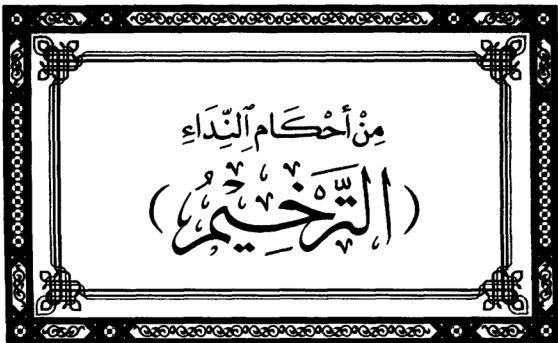 مِنْ أَحْكَامِ ٱلنِّدَاءِ
(التَّرْخِيْمُ)